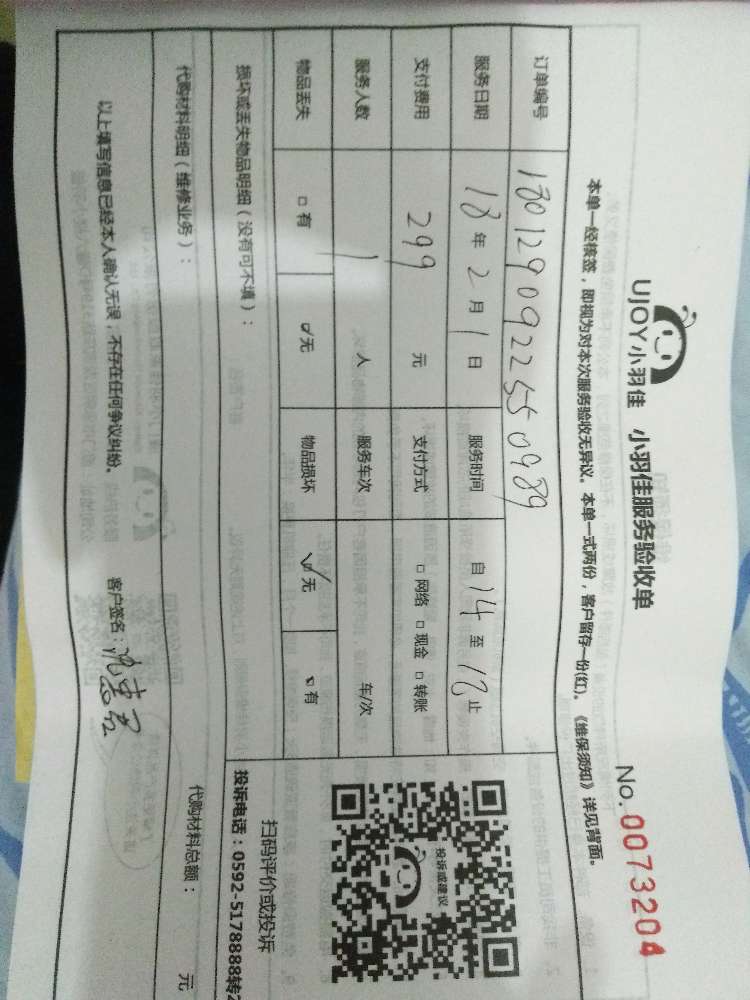 UJOY小羽佳 小羽佳服务验收单 No. 0073204
本单一经核签，即视为对本次服务验收无异议。本单一式两份，客户留存一份(红)。《维保须知》详见背面。
订单编号 1801290922550989
服务日期 18年2月1日 服务时间 自14至18止
支付费用 299元 支付方式 □网络 □现金 □转账
服务人数 1人 服务车次 车/次
物品丢失 □有 ☑无 物品损坏 ☑无 □有
损坏或丢失物品明细（没有可不填）：
投诉或建议
扫码评价或投诉
投诉电话：0592-5178888转2
代购材料明细（维修业务）： 代购材料总额： 元
以上填写信息已经本人确认无误，不存在任何争议纠纷。 客户签名：